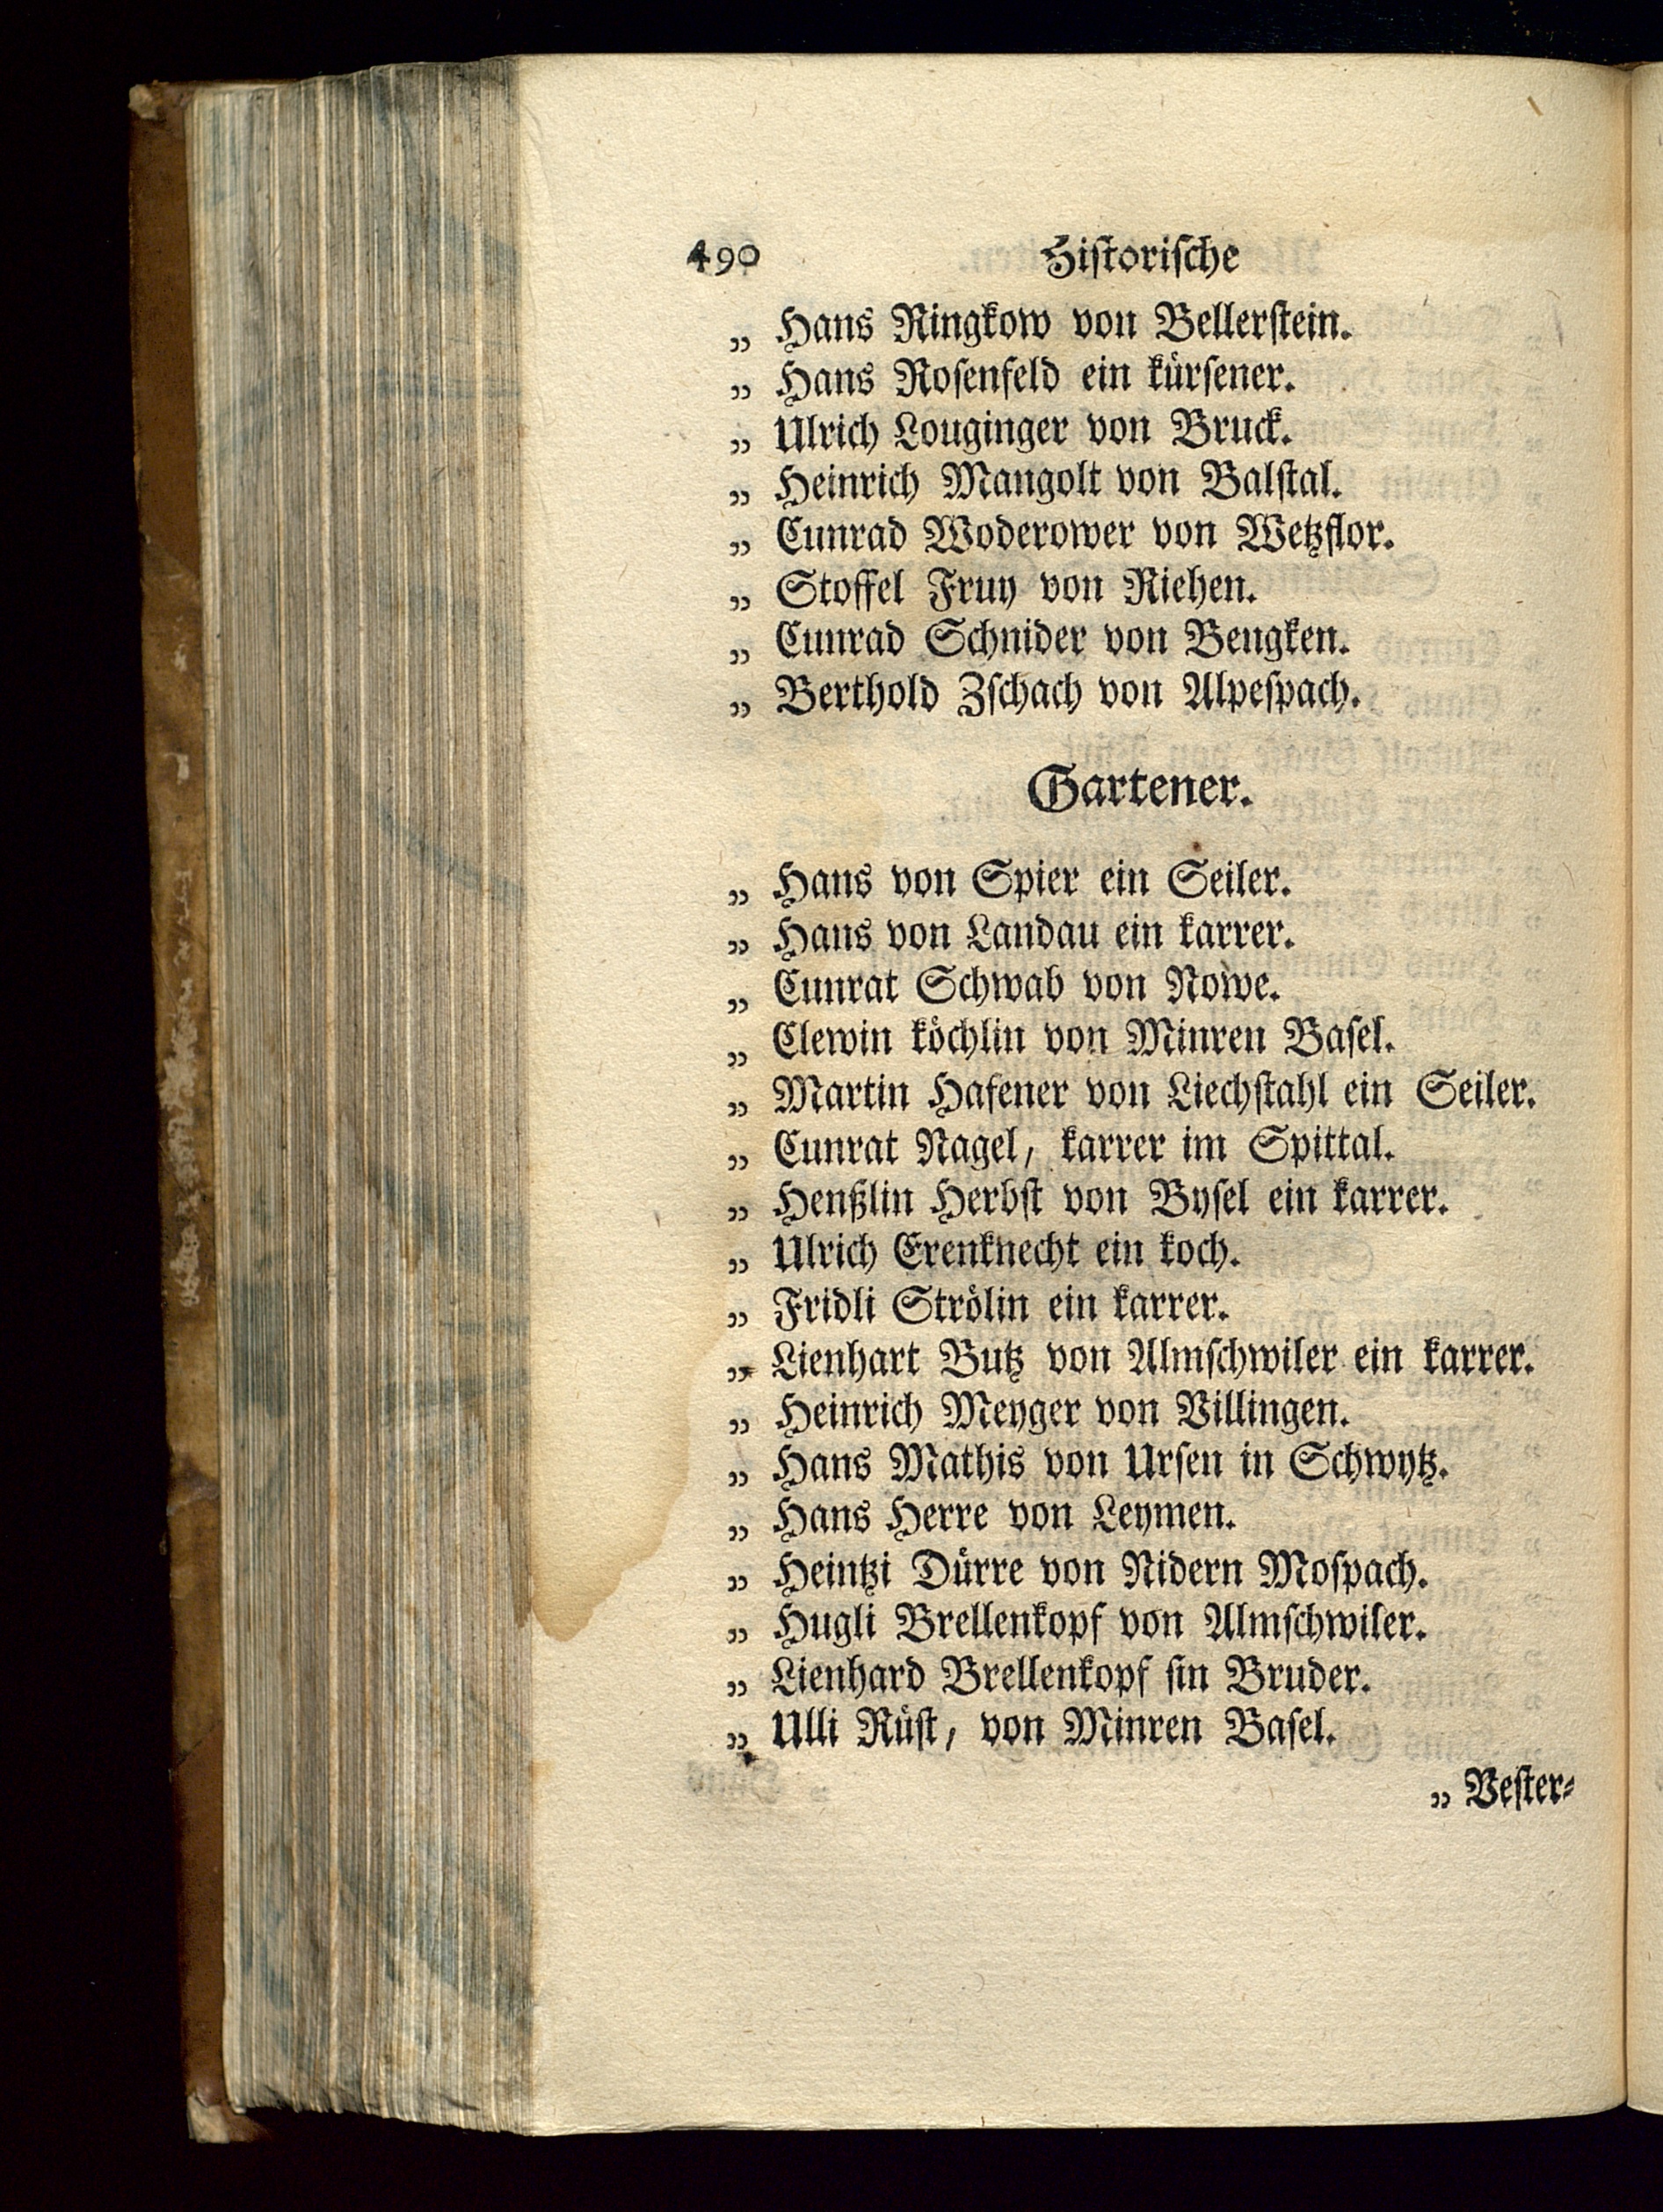 490 Historische
„ Hans Ringkow von Bellerstein.
„ Hans Rosenfeld ein kürsener.
„ Ulrich Louginger von Bruck.
„ Heinrich Mangolt von Balstal.
„ Cunrad Woderower von Wetzflor.
„ Stoffel Fruy von Riehen.
„ Cunrad Schnider von Bengken.
„ Berthold Zschach von Alpespach.
Gartener.
„ Hans von Spier ein Seiler.
„ Hans von Landau ein karrer.
„ Cunrat Schwab von Nowe.
„ Clewin köchlin von Minren Basel.
„ Martin Hafener von Liechstahl ein Seiler.
„ Cunrat Nagel, karrer im Spittal.
„ Henßlin Herbst von Bysel ein karrer.
„ Ulrich Erenknecht ein koch.
„ Fridli Strölin ein karrer.
„ Lienhart Butz von Almschwiler ein karrer.
„ Heinrich Meyger von Villingen.
„ Hans Mathis von Ursen in Schwytz.
„ Hans Herre von Leymen.
„ Heintzi Dürre von Nidern Mospach.
„ Hugli Brellenkopf von Almschwiler.
„ Lienhard Brellenkopf sin Bruder.
„ Ulli Rüst, von Minren Basel.
„ Vester-